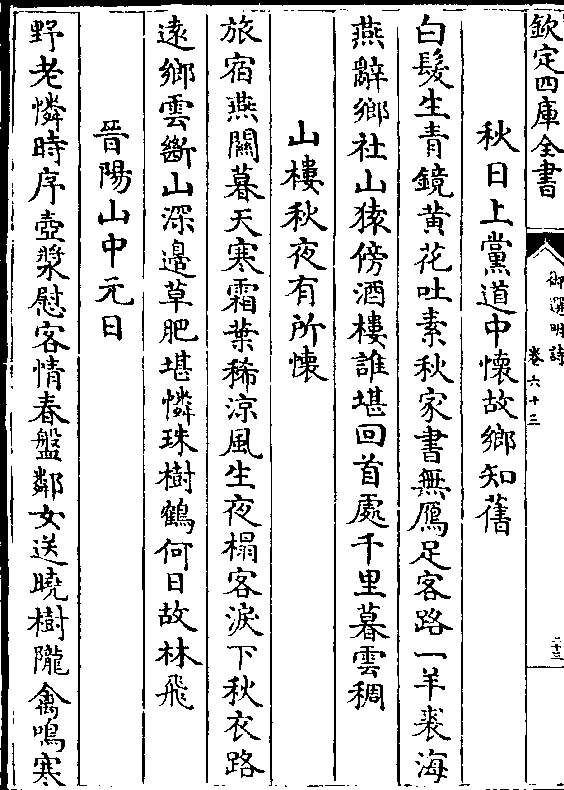 欽定四庫全書
御選明詩
卷六十三
二十三
秋日上黨道中懷故鄉知舊
白髮生青鏡黄花吐素秋家書無鴈足客路一羊裘海
燕辭鄉社山猿傍酒樓誰堪回首處千里暮雲稠
山樓秋夜有所懷
旅宿燕關暮天寒霜葉稀涼風生夜榻客淚下秋衣路
遠鄉雲斷山深邉草肥堪憐珠樹鶴何日故林飛
晉陽山中元日
野老憐時序壺漿慰客情春盤鄰女送曉樹隴禽鳴寒